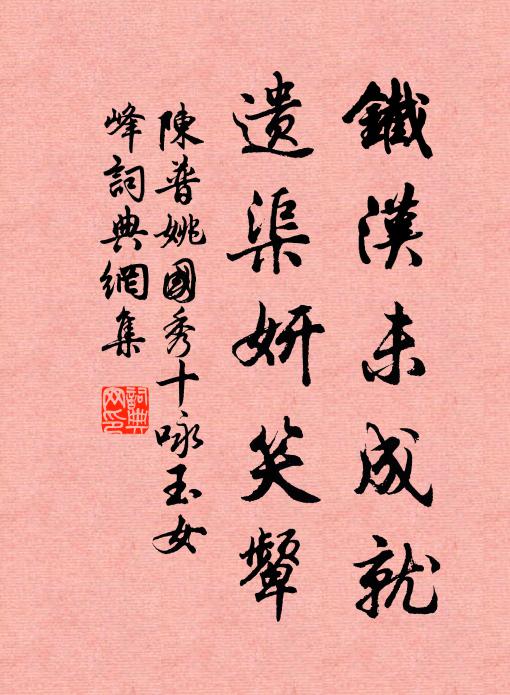 鐵漢未成就
遗渠妍笑顰
陳普姚國秀十咏玉女
峰詞典網集
詞典網印